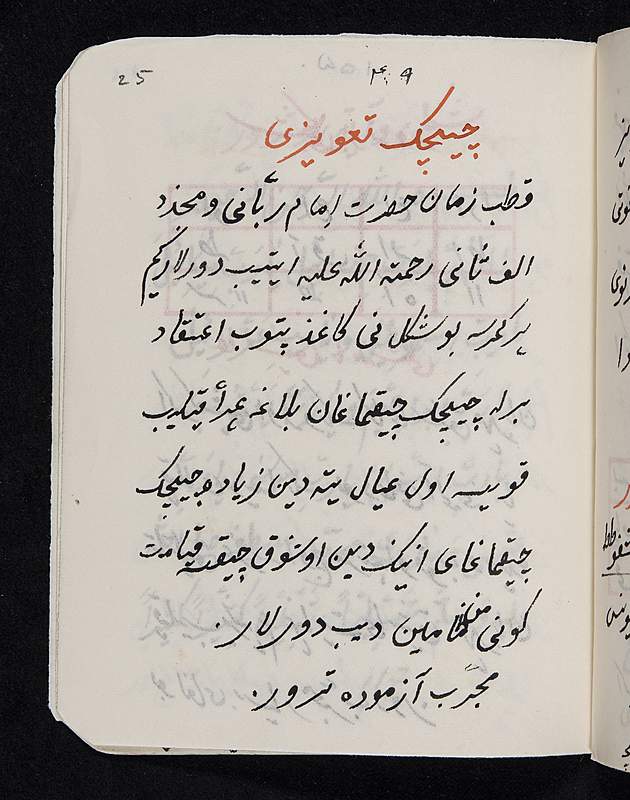 25 ۴۹
چیچک تعویزی
قطب زمان حضرت امام ربّانی و مجدّد
الف ثانی رحمته اللّه علیه ایتیب دورلارکیم
هر کمرسه بو شکل نی کاغذ یتوب اعتقاد
برله چیچک چیقماغان بلاغه عمداً قیلیب
قویسه اول عیال یته دین زیاده چیچک
چیقماغای انیک دین اوشوق چیقسه قیامت
کونی من ضامین دیب دورلار.
مجرّب آزموده ترور.